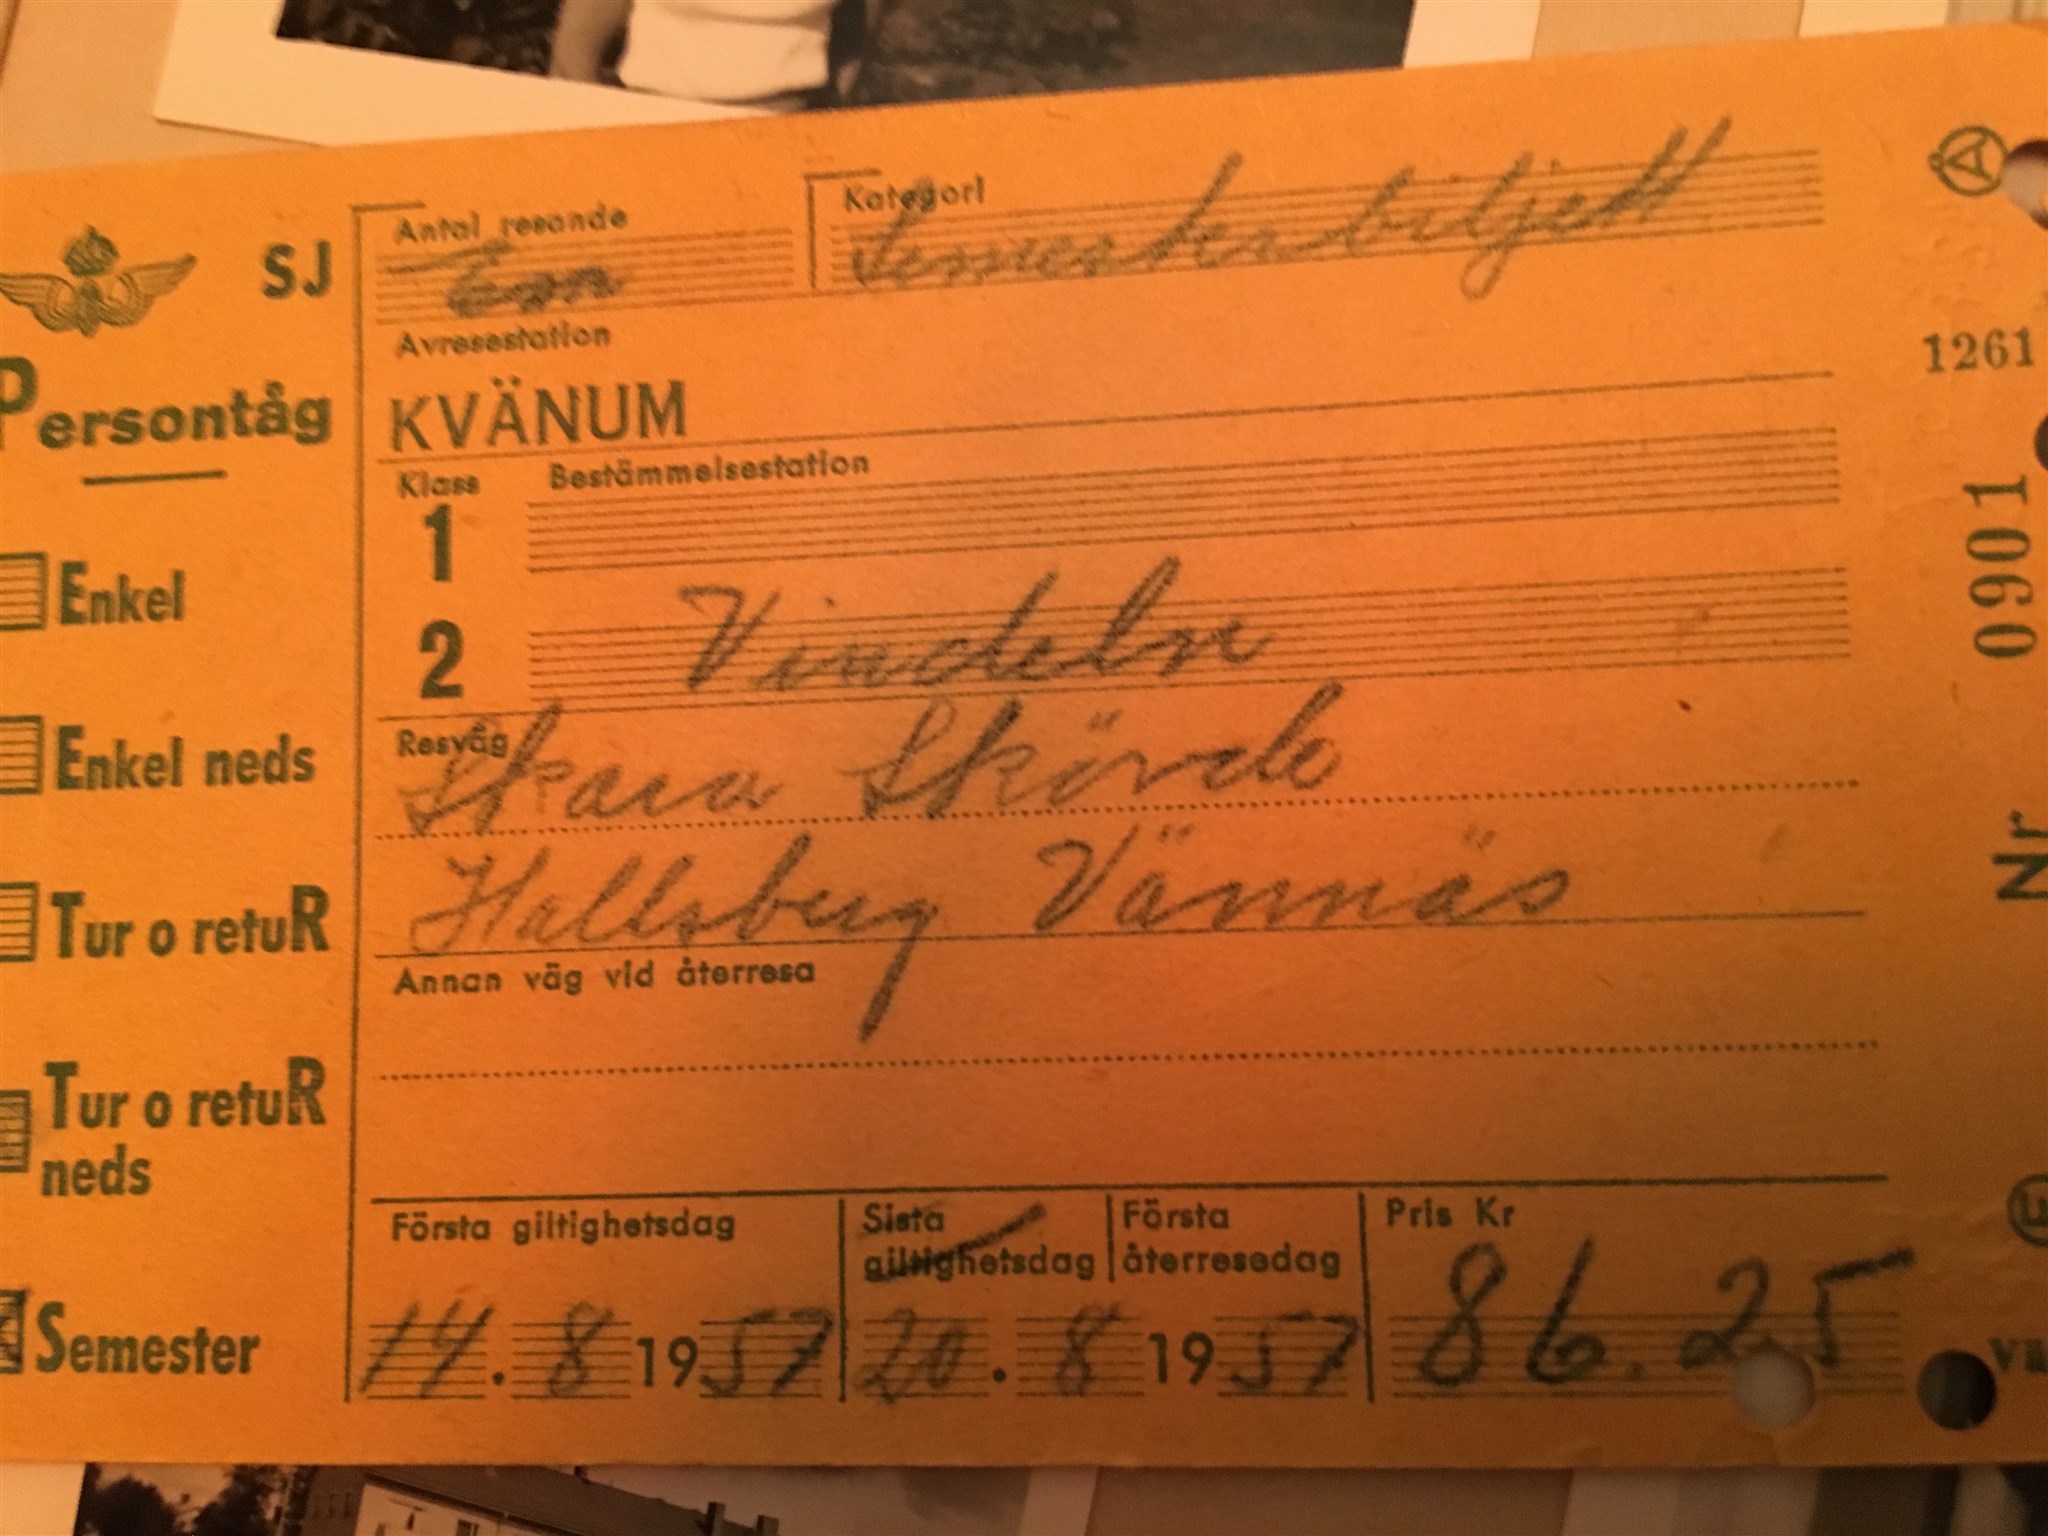 SJ
Antal resande Kategori
En Semesterbiljett
Avresestation
Persontåg
KVÄNUM
1261
Klass Bestämmelsestation
1
Enkel
2 Vindeln
Nr 0901
Enkel neds
Resväg Skara Skövde
Tur o retuR
Hallsberg Vännäs
Annan väg vid återresa
Tur o retuR
neds
Semester
Första giltighetsdag Sista giltighetsdag Första återresedag Pris Kr
14. 8 1957 20. 8 1957 86.25